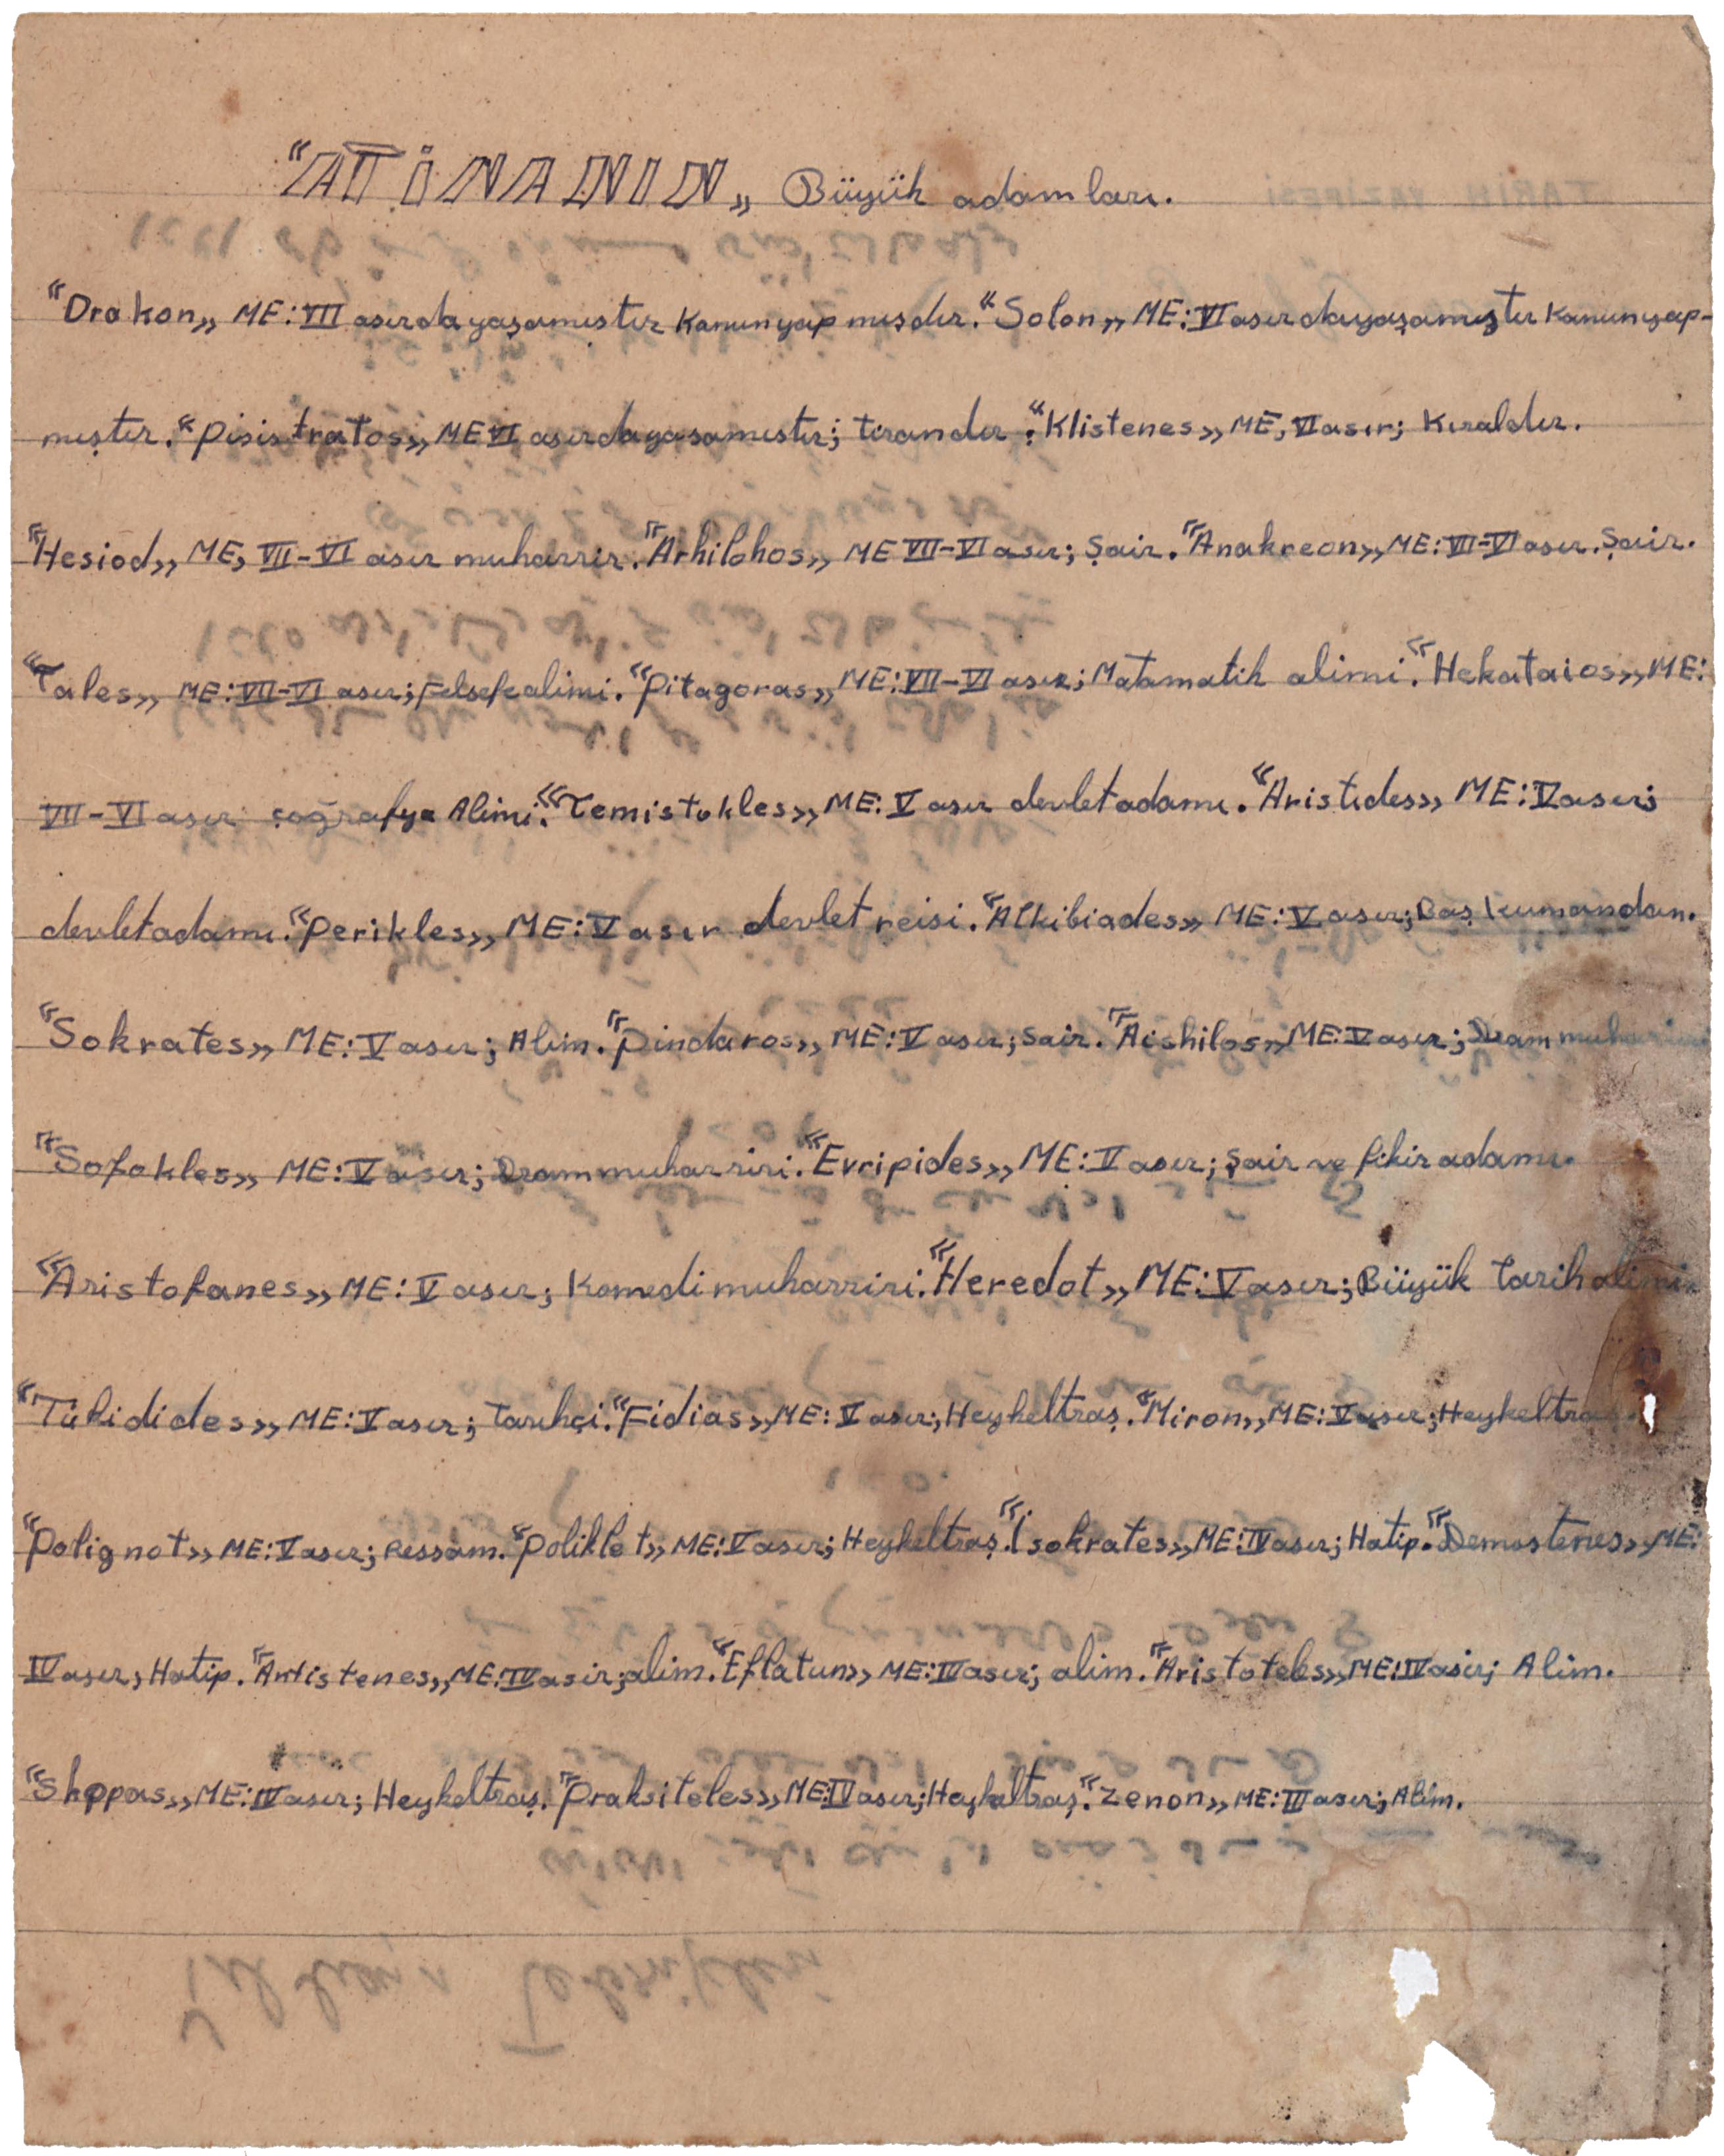 "ATİNANIN„ Büyük adamları.
TARİH VAZİFESİ
"Drakon„ ME: VII asırda yaşamıştır kanun yapmışdır. "Solon„ ME: VI asırda yaşamıştır kanun yap-
mıştır. "Pisistratos„ ME VI asırda yasamıstır; tirandır. "Klistenes„ ME, VI asır; Kıraldır.
"Hesiod„ ME, VII-VI asır muharrir. "Arhilohos„ ME VII-VI asır; Şair. "Anakreon„ ME: VII-VI asır. Şair.
"Tales„ ME: VII-VI asır; Felsefe alimi. "Pitagoras„ ME: VII-VI asır; Matamatik alimi. "Hekataios„ ME:
VII-VI asır coğrafya Alimi. "Temistokles„ ME: V asır devlet adamı. "Aristides„ ME: V asır;
devlet adamı. "Perikles„ ME: V asır devlet reisi. "Alkibiades„ ME: V asır; Baş kumandan.
"Sokrates„ ME: V asır; Alim. "Pindaros„ ME: V asır; Sair. "Aishilos„ ME: V asır; Dram muharriri
"Sofokles„ ME: V asır; Dram muharriri. "Evripides„ ME: V asır; Şair ve fikir adamı.
"Aristofanes„ ME: V asır; Komedi muharriri. "Heredot„ ME: V asır; Büyük tarih alimi.
"Tükidides„ ME: V asır; Tarihçi. "Fidias„ ME: V asır; Heykeltraş. "Miron„ ME: V asır; Heykeltraş.
"Polignot„ ME: V asır; Ressam. "Poliklet„ ME: V asır; Heykeltraş. "İsokrates„ ME: IV asır; Hatip. "Demostenes„ ME:
IV asır, Hatip. "Antistenes„ ME: IV asir; alim. "Eflatun„ ME: IV asır; alim. "Aristoteles„ ME: IV asır; Alim.
"Skopas„ ME: IV asır; Heykeltraş. "Praksiteles„ ME: IV asır; Heykeltraş. "Zenon„ ME: III asır; Alim.